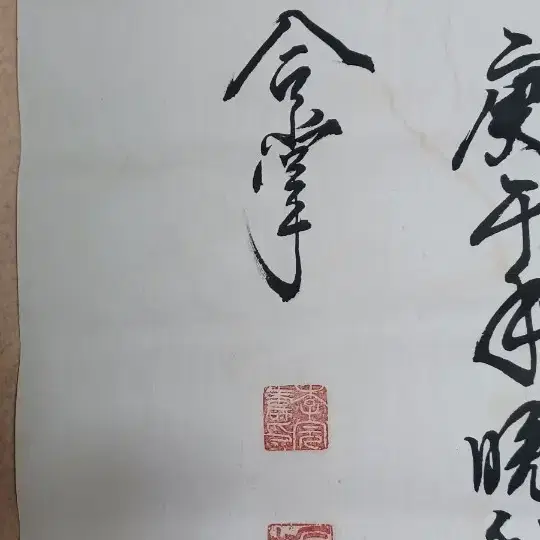 庚午年晚
合掌